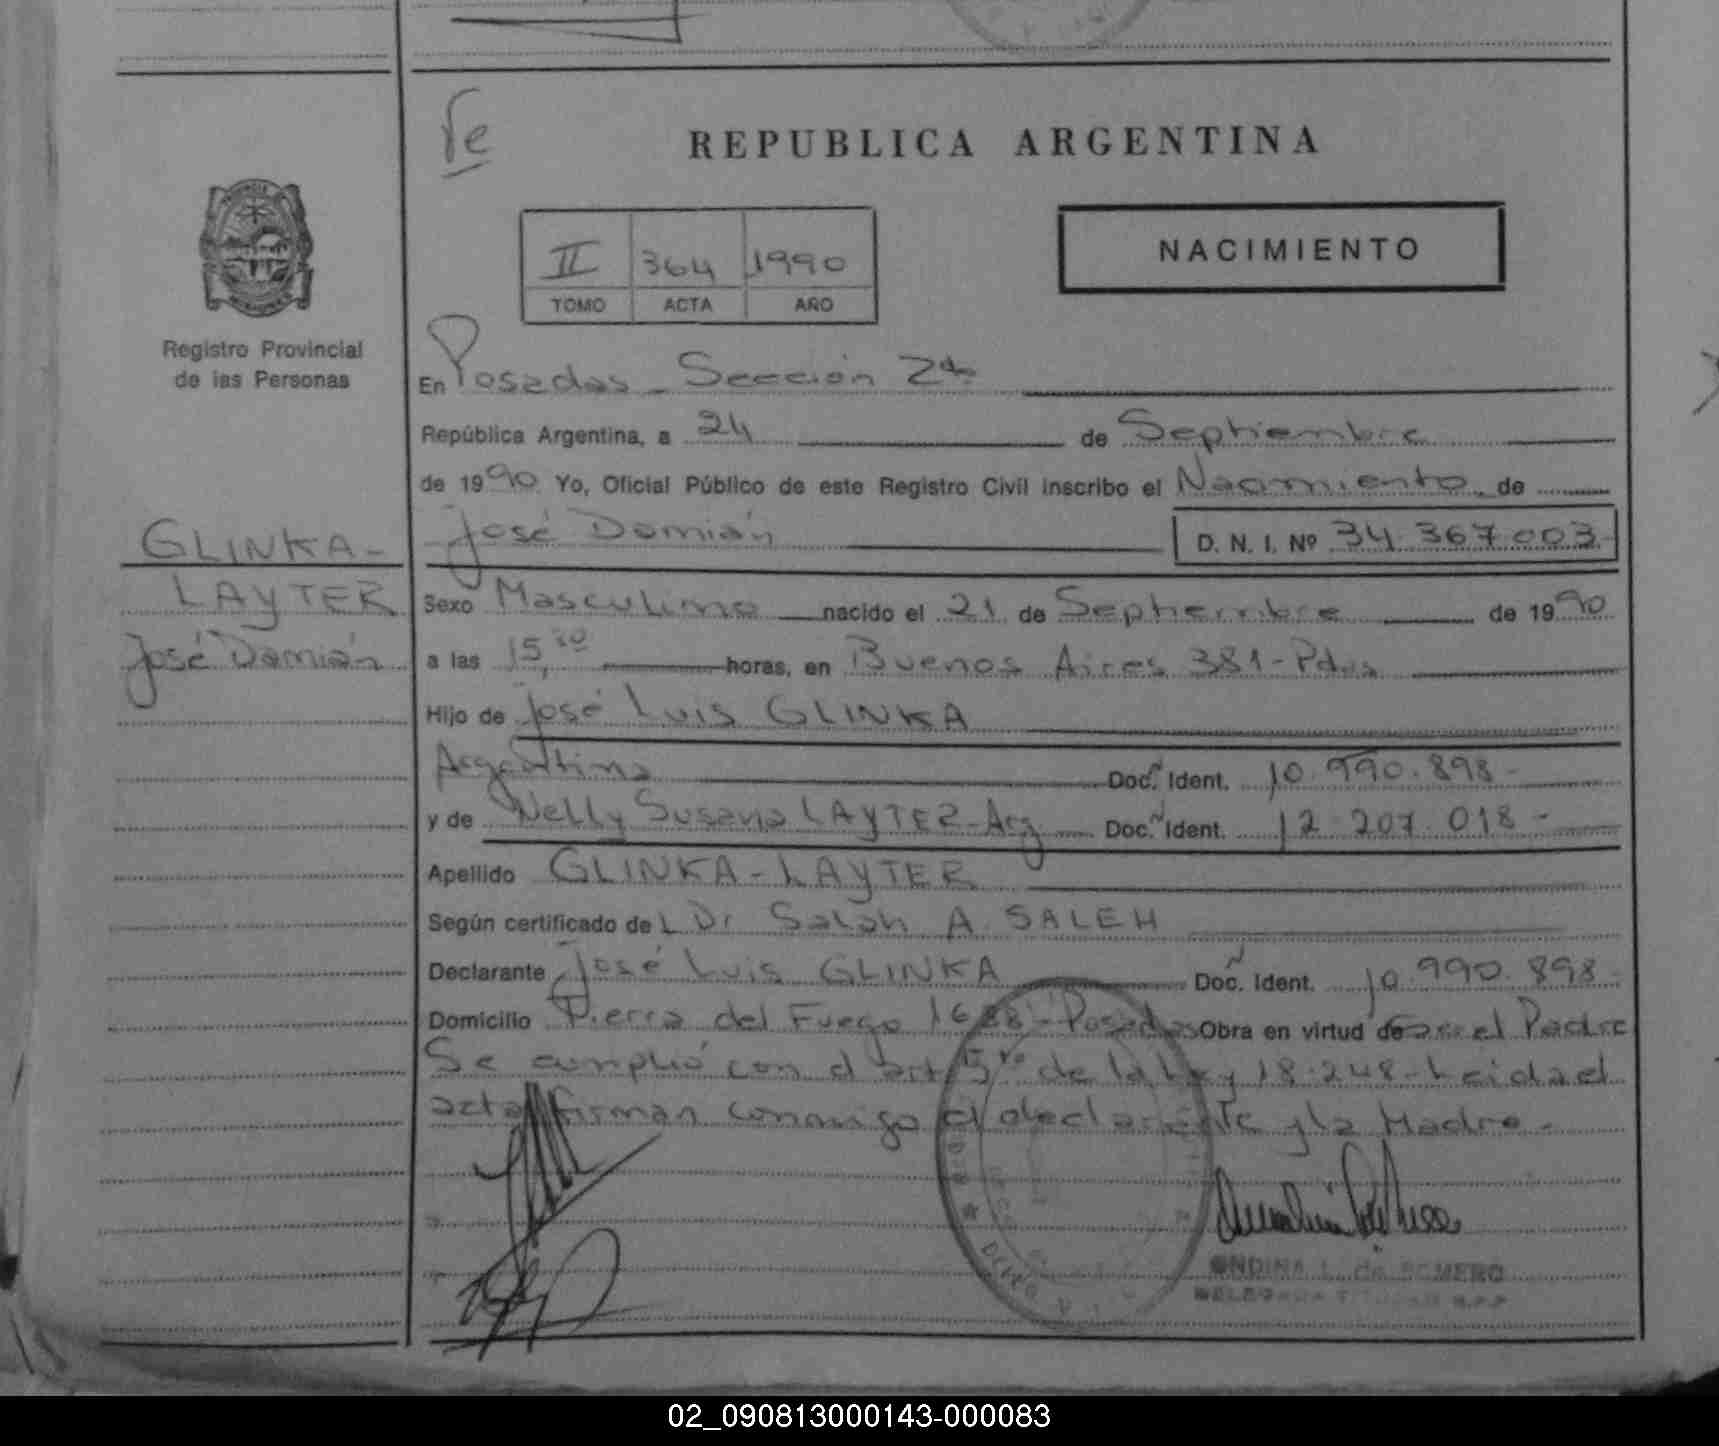 Te
REPUBLICA ARGENTINA
II 364 1990
TOMO ACTA AÑO
NACIMIENTO
Registro Provincial
de las Personas
En Posadas - Sección 2da
República Argentina, a 24 de Septiembre
de 1990 Yo, Oficial Público de este Registro Civil inscribo el Nacimiento de
José Damián D. N. I. Nº 34.367.003
GLINKA-
LAYTER
José Damián
Sexo Masculino nacido el 21 de Septiembre de 1990
a las 15,30 horas, en Buenos Aires 381-Pdas
Hijo de José Luis GLINKA
Argentina Doc. Ident. 10.990.898-
y de Nelly Susana LAYTER-Arg Doc. Ident. 12.207.018-
Apellido GLINKA-LAYTER
Según certificado del Dr Salah A. SALEH
Declarante José Luis GLINKA Doc. Ident. 10.990.898-
Domicilio Tierra del Fuego 1688-Posadas Obra en virtud de Ser el Padre
Se cumplió con el art. 5to de la Ley 18.248-Leida el
acta, firman conmigo el declarante y la Madre-
ONDINA L. de ROMERO
DELEGADA TITULAR R.P.P
02_090813000143-000083